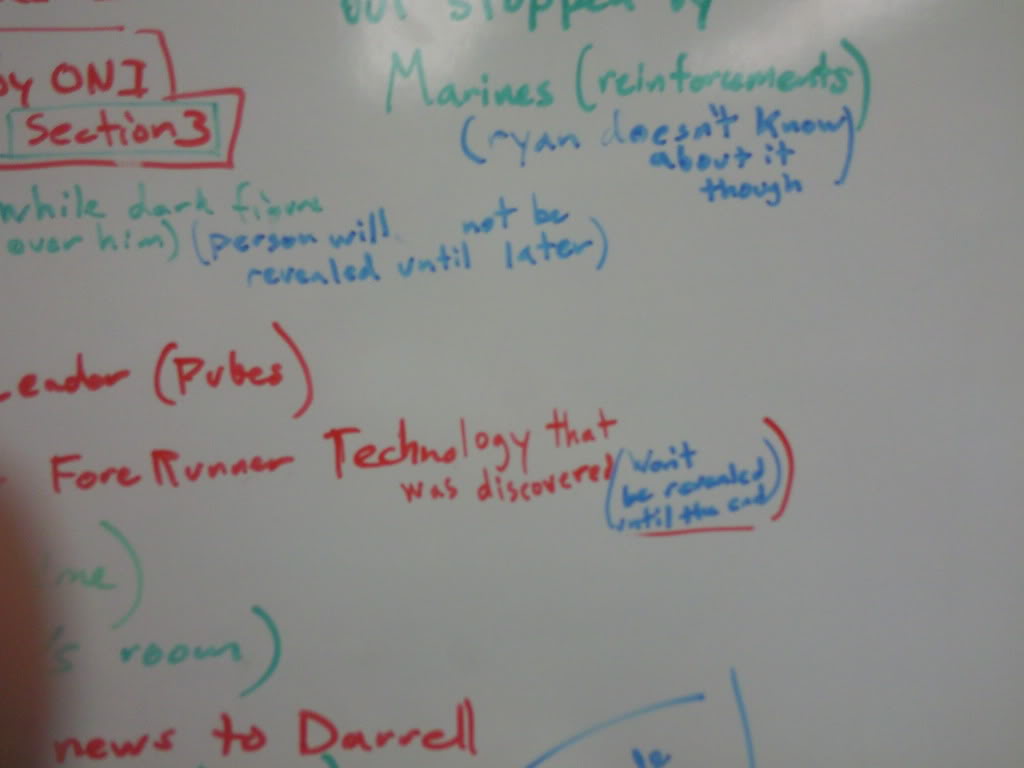 but stopped by
by ONI
Marines (reinforcements)
Section 3
(ryan doesn't know
about it
though
while dark figure
over him) (person will not be
revealed until later)
Leader (Pubes)
ForeRunner Technology that
was discovered (Won't
be revealed
until the end)
me)
's room)
news to Darrell
le